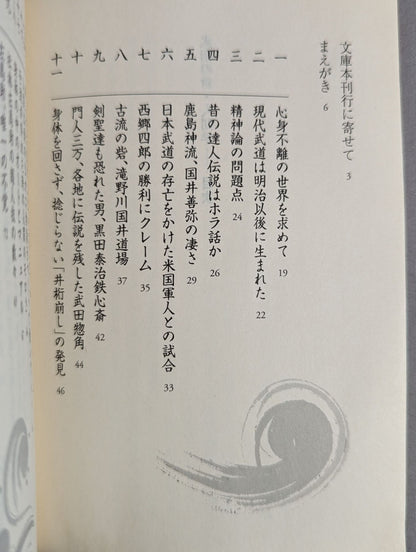 文庫本刊行に寄せて 3
まえがき 6
一 心身不離の世界を求めて 19
二 現代武道は明治以後に生まれた 22
三 精神論の問題点 24
四 昔の達人伝説はホラ話か 26
五 鹿島神流、国井善弥の凄さ 29
六 日本武道の存亡をかけた米国軍人との試合 33
七 西郷四郎の勝利にクレーム 35
八 古流の砦、滝野川国井道場 37
九 剣聖達も恐れた男、黒田泰治鉄心斎 42
十 門人三万、各地に伝説を残した武田惣角 44
十一 身体を回さず、捻じらない「井桁崩し」の発見 46